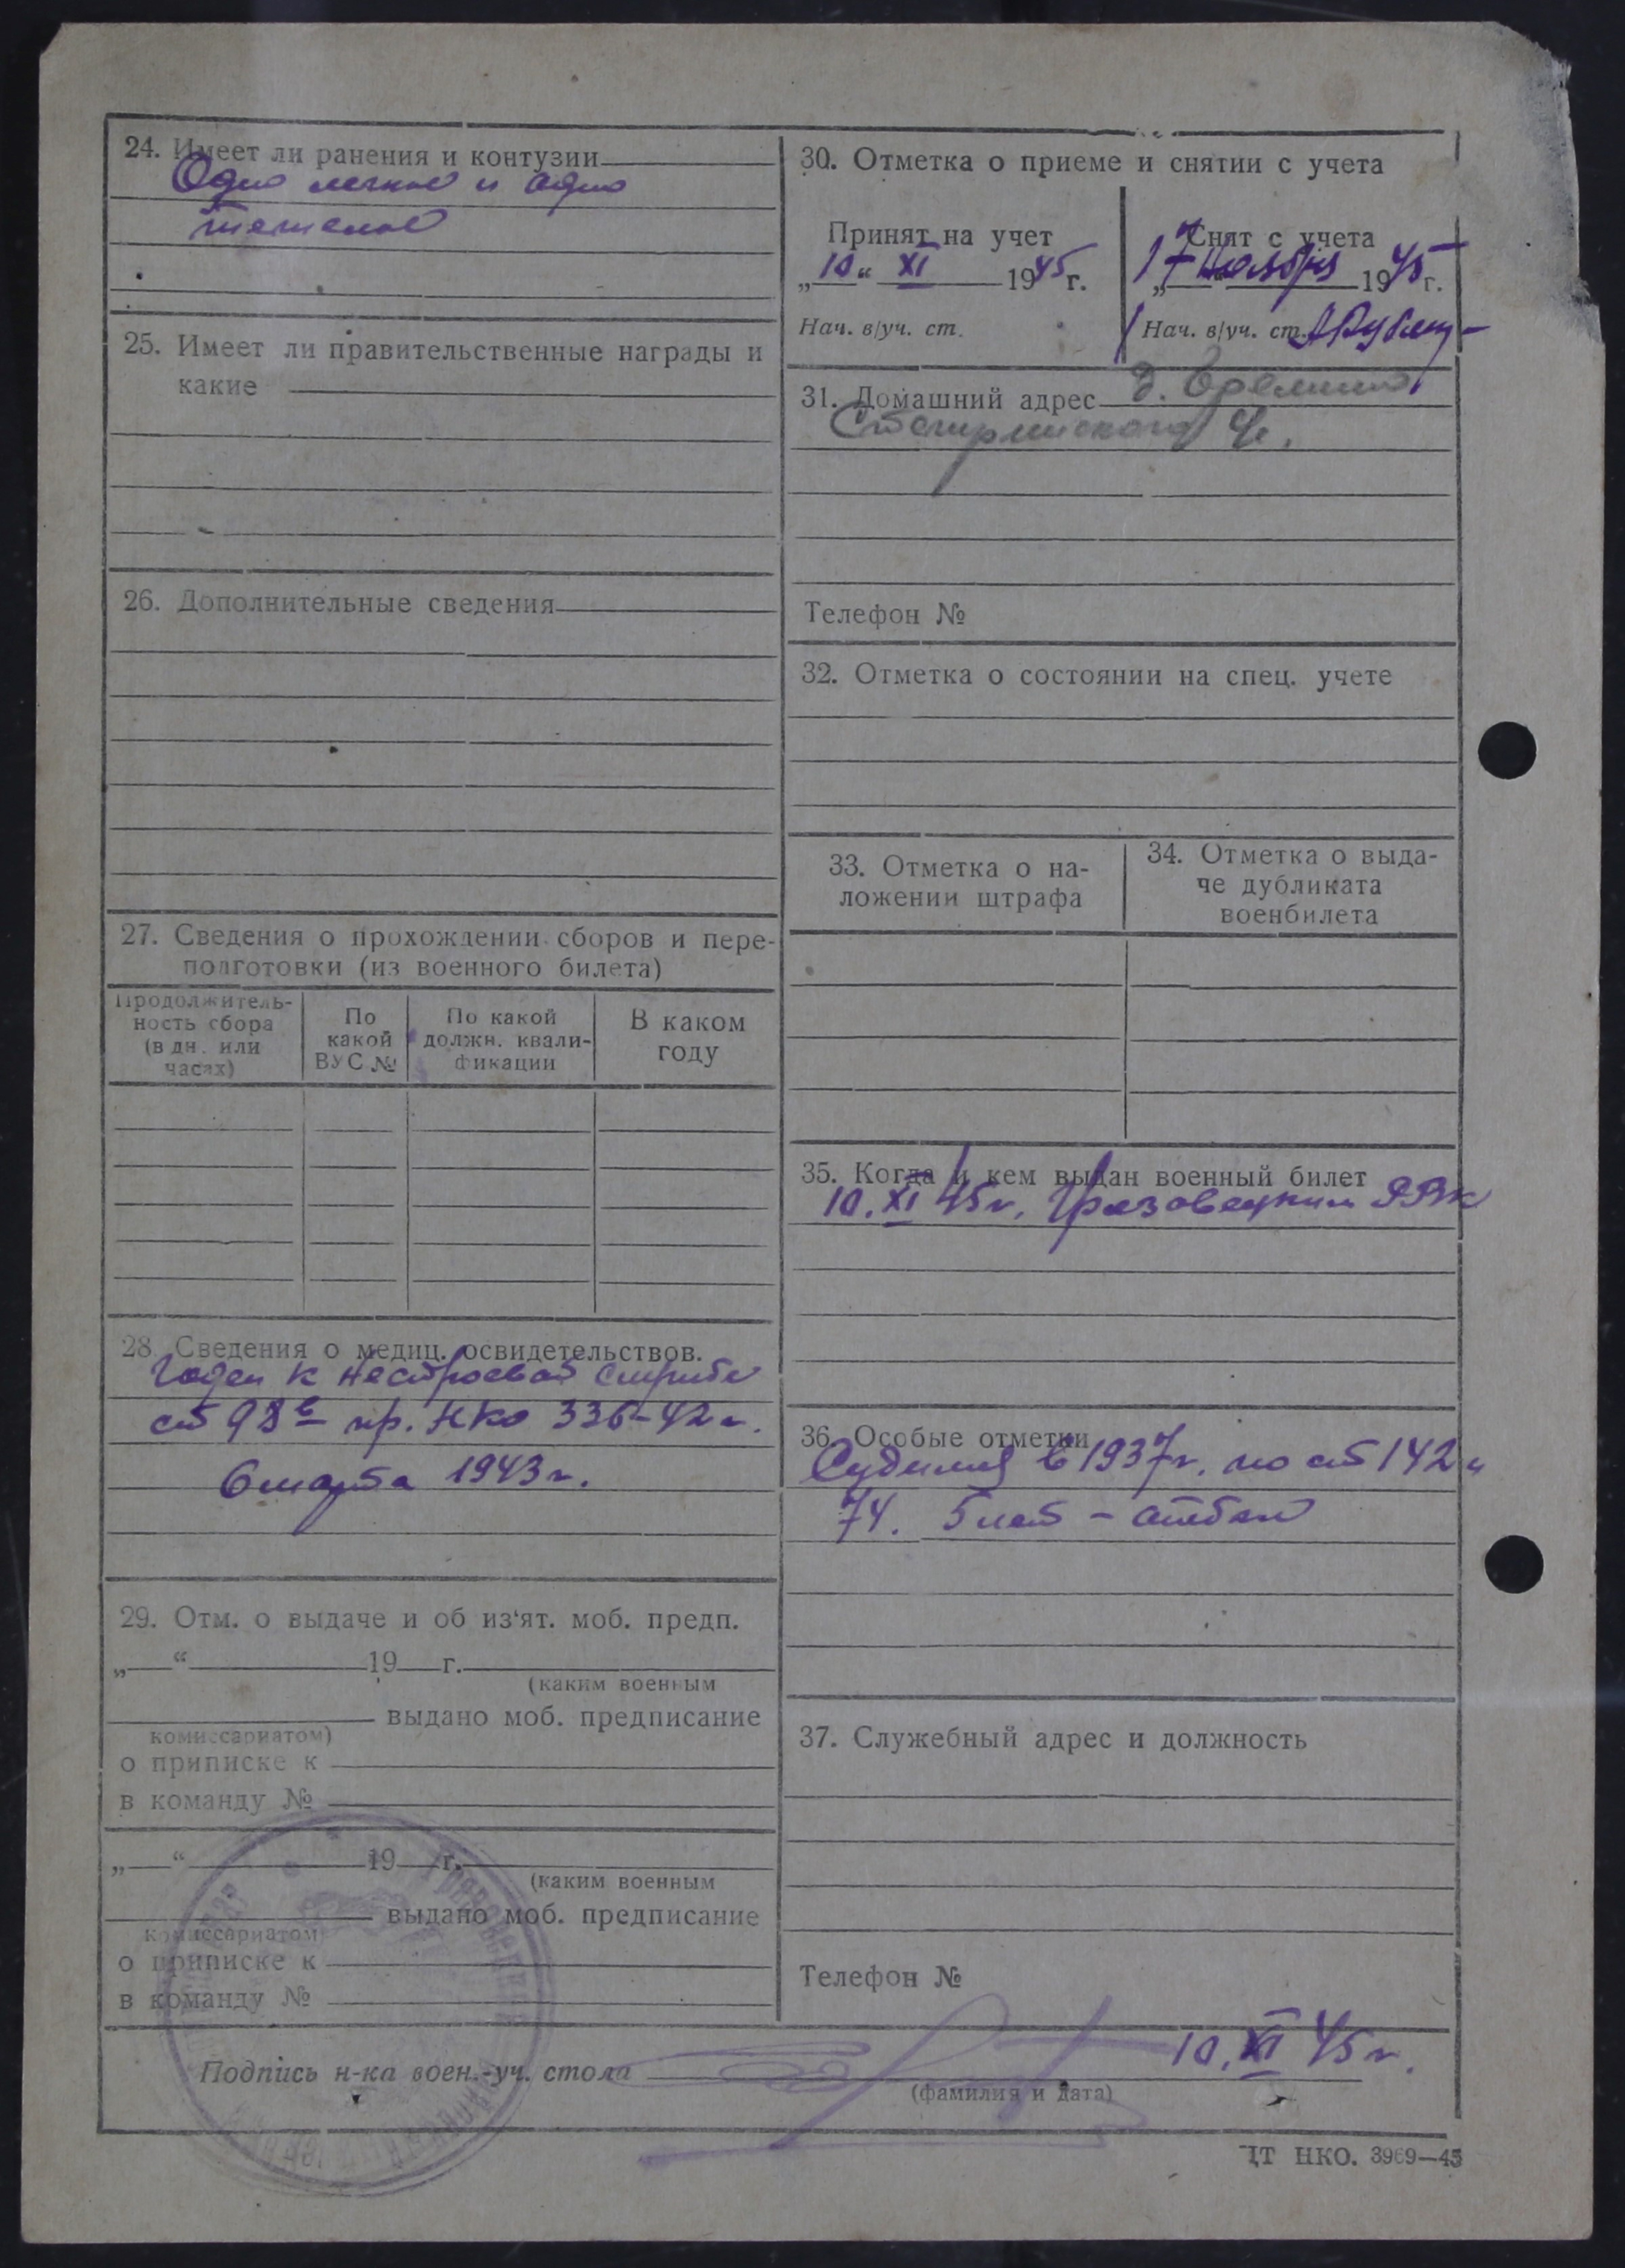 24. Имеет ли ранения и контузии
Одно легкое и одно
тяжелое
25. Имеет ли правительственные награды и
какие
26. Дополнительные сведения
27. Сведения о прохождении сборов и пере-
подготовки (из военного билета)
Продолжитель-
ность сбора
(в дн. или
часах)
По
какой
ВУС №
По какой
должн. квали-
фикации
В каком
году
28. Сведения о медиц. освидетельствов.
Годен к нестроевой службе
ст 98в пр. НКО 336-42 г.
6 марта 1943 г.
29. Отм. о выдаче и об из‘ят. моб. предп.
„ “ 19 г.
(каким военным
выдано моб. предписание
комиссариатом)
о приписке к
в команду №
„ “ 19 г.
(каким военным
выдано моб. предписание
комиссариатом
о приписке к
в команду №
30. Отметка о приеме и снятии с учета
Принят на учет
„10“ XI 1945 г.
Нач. в/уч. ст.
Снят с учета
17 Ноября 1945 г.
Нач. в/уч. ст.
31. Домашний адрес д.
Телефон №
32. Отметка о состоянии на спец. учете
33. Отметка о на-
ложении штрафа
34. Отметка о выда-
че дубликата
военбилета
35. Когда и кем выдан военный билет
10. XI 45 г. Грязовецким РВК
36. Особые отметки
Судился в 1937 г. по ст 142 и
74. 5 лет - отбыл
37. Служебный адрес и должность
Телефон №
Подпись н-ка воен.-уч. стола 10. XI 45 г.
(фамилия и дата)
ЦТ НКО. 3969—45